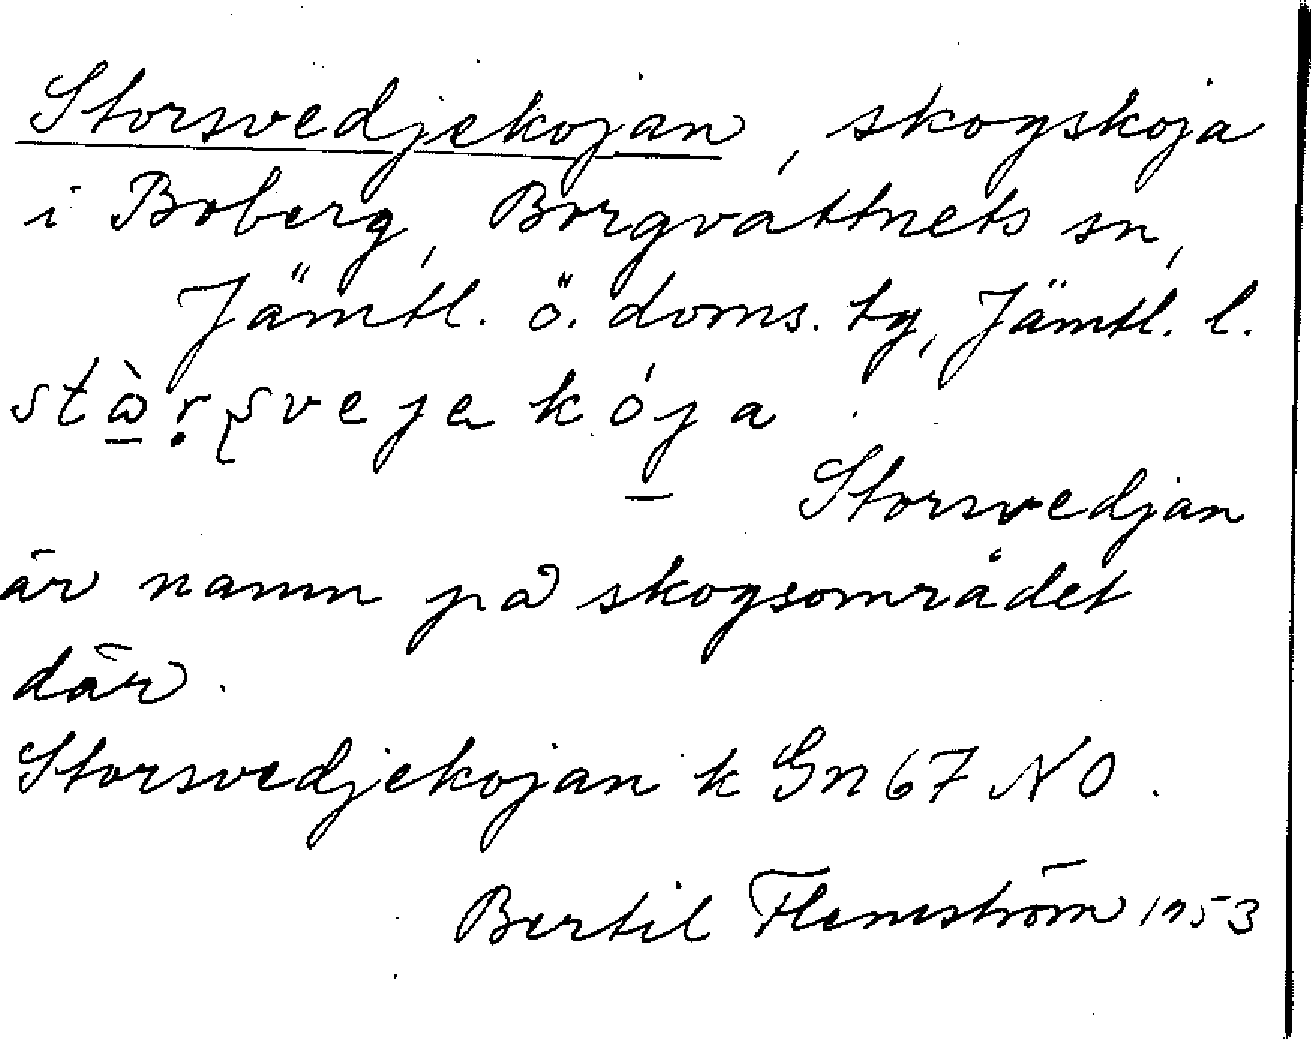 Storsvedjekojan, skogskoja
i Boberg, Borgvattnets sn,
Jämtl. ö. doms. tg, Jämtl. l.
Storsvedjan
är namn på skogsområdet
där.
Storsvedjekojan k Gn 67 NO.
Bertil Flemström 1953